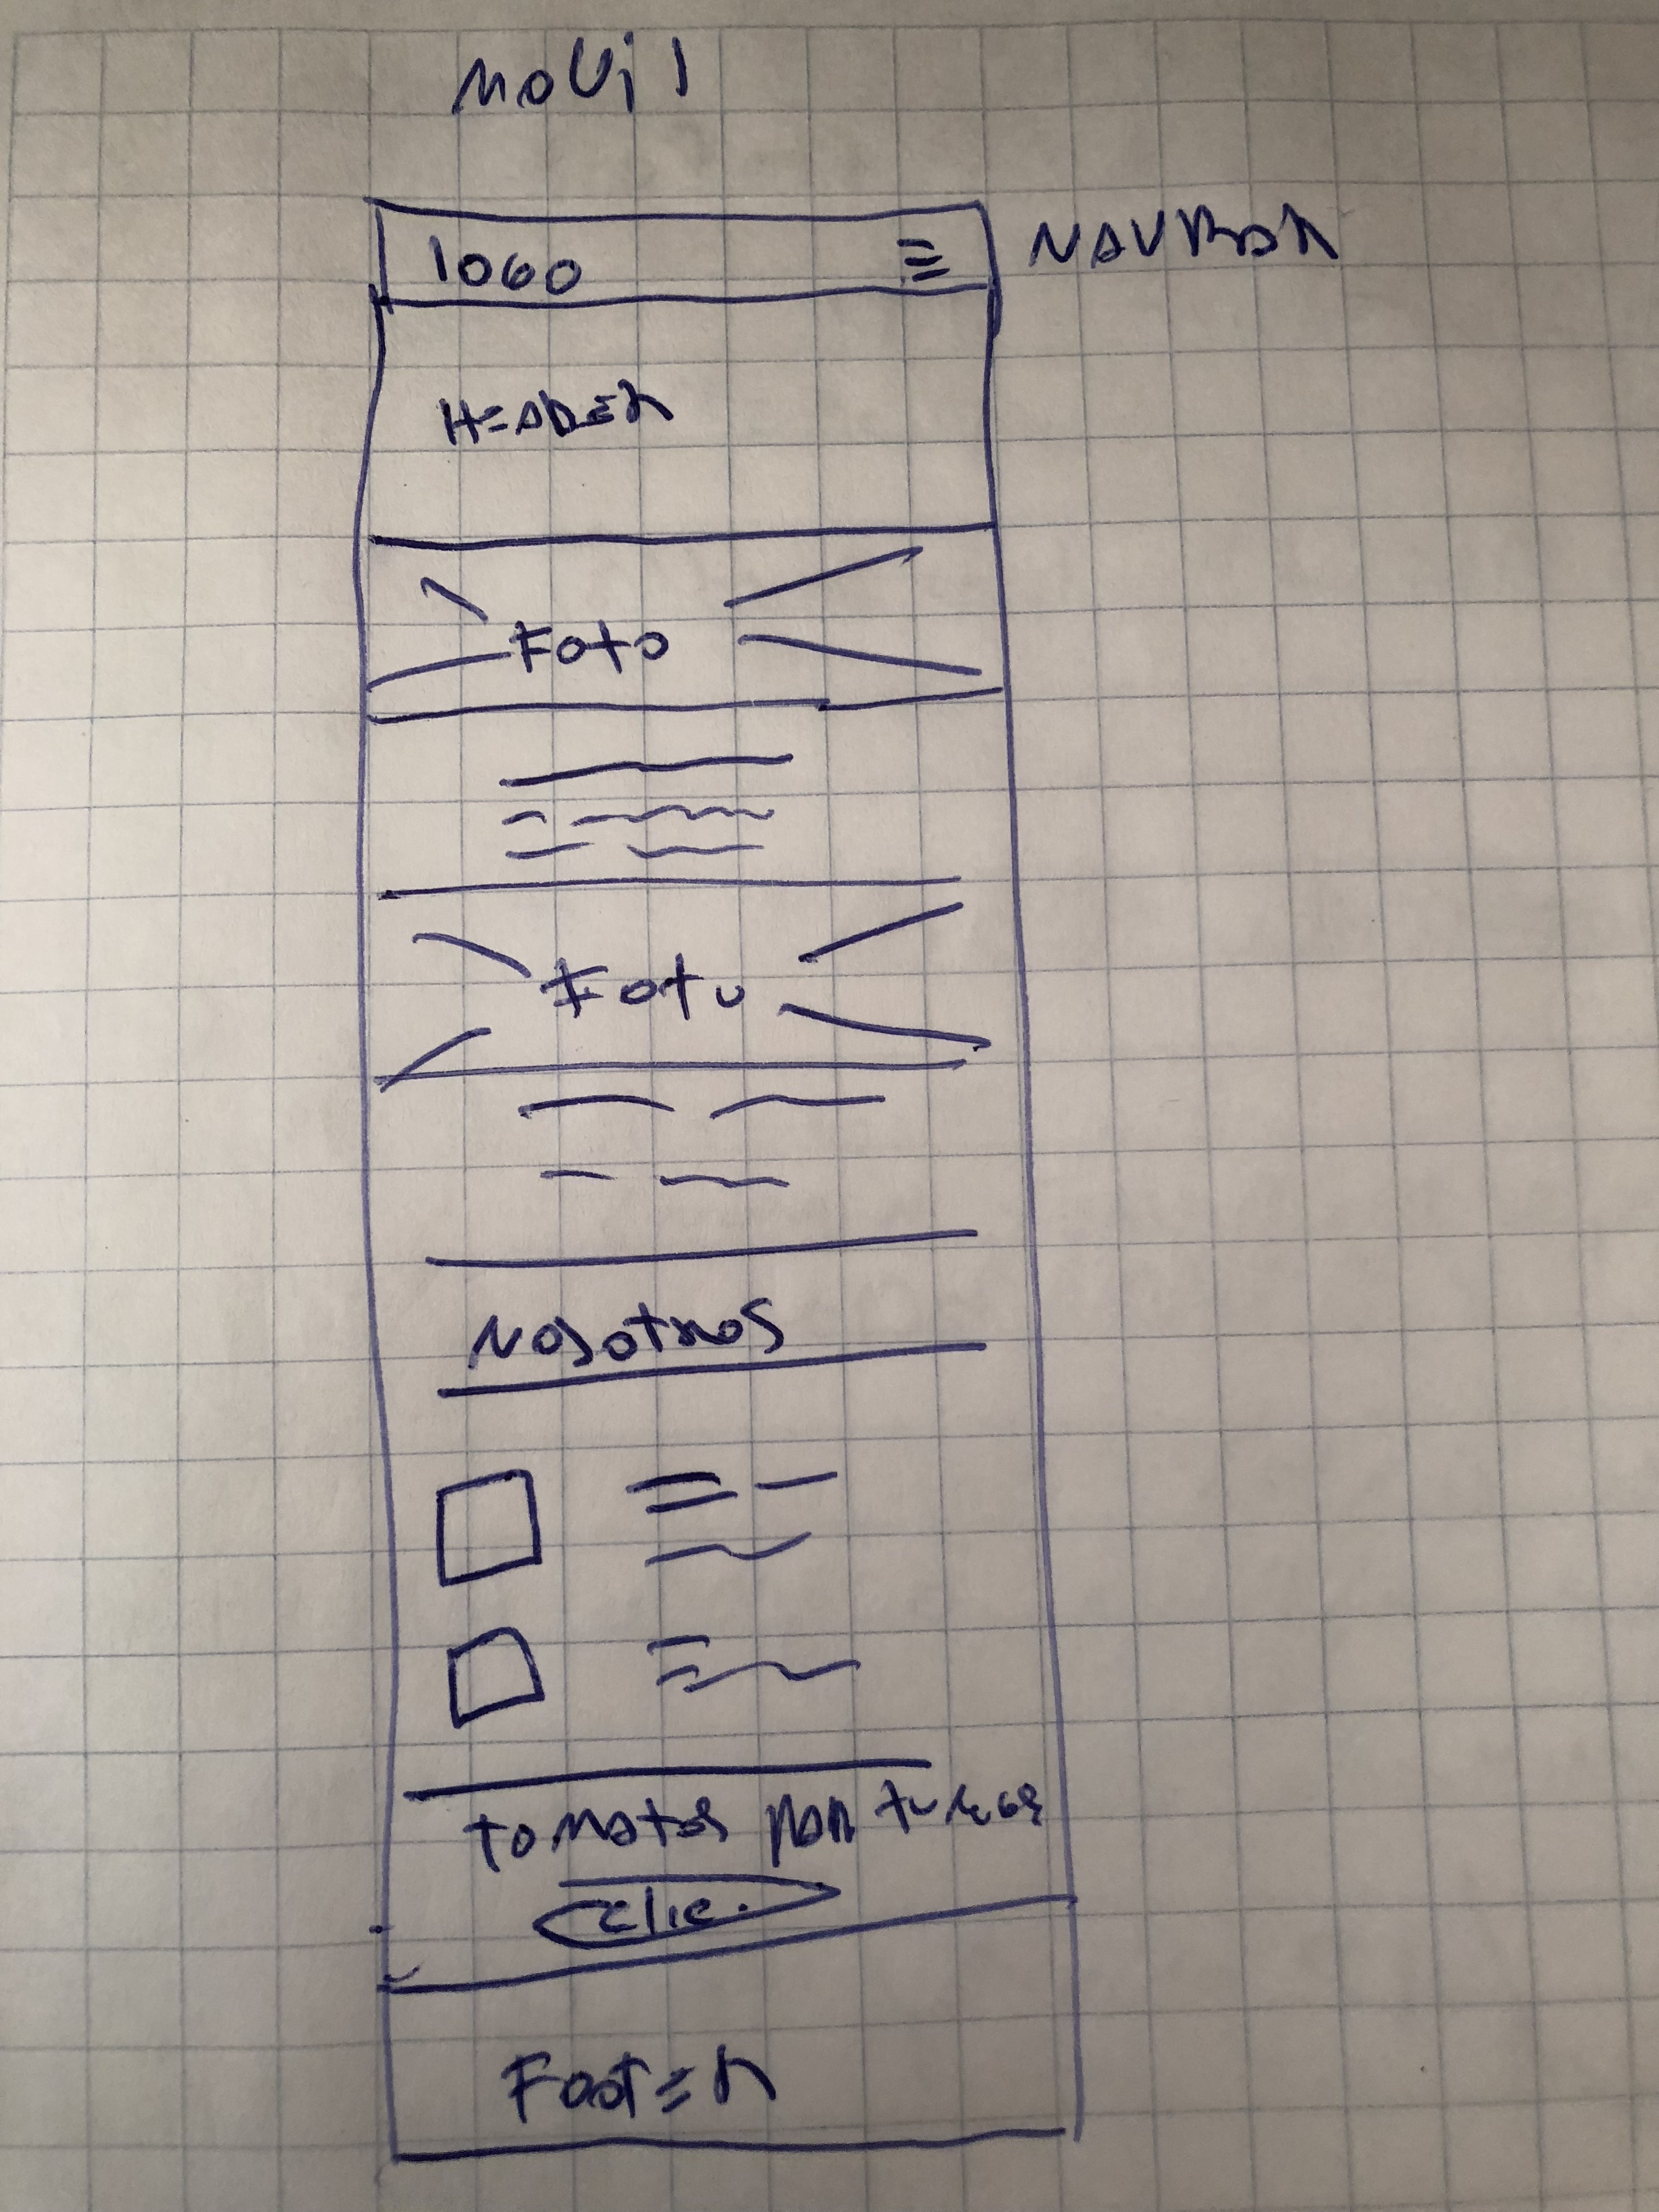 movil
logo
NAVBAR
HEADER
Foto
Foto
Nosotros
tomates por tu
Clic.
Footer